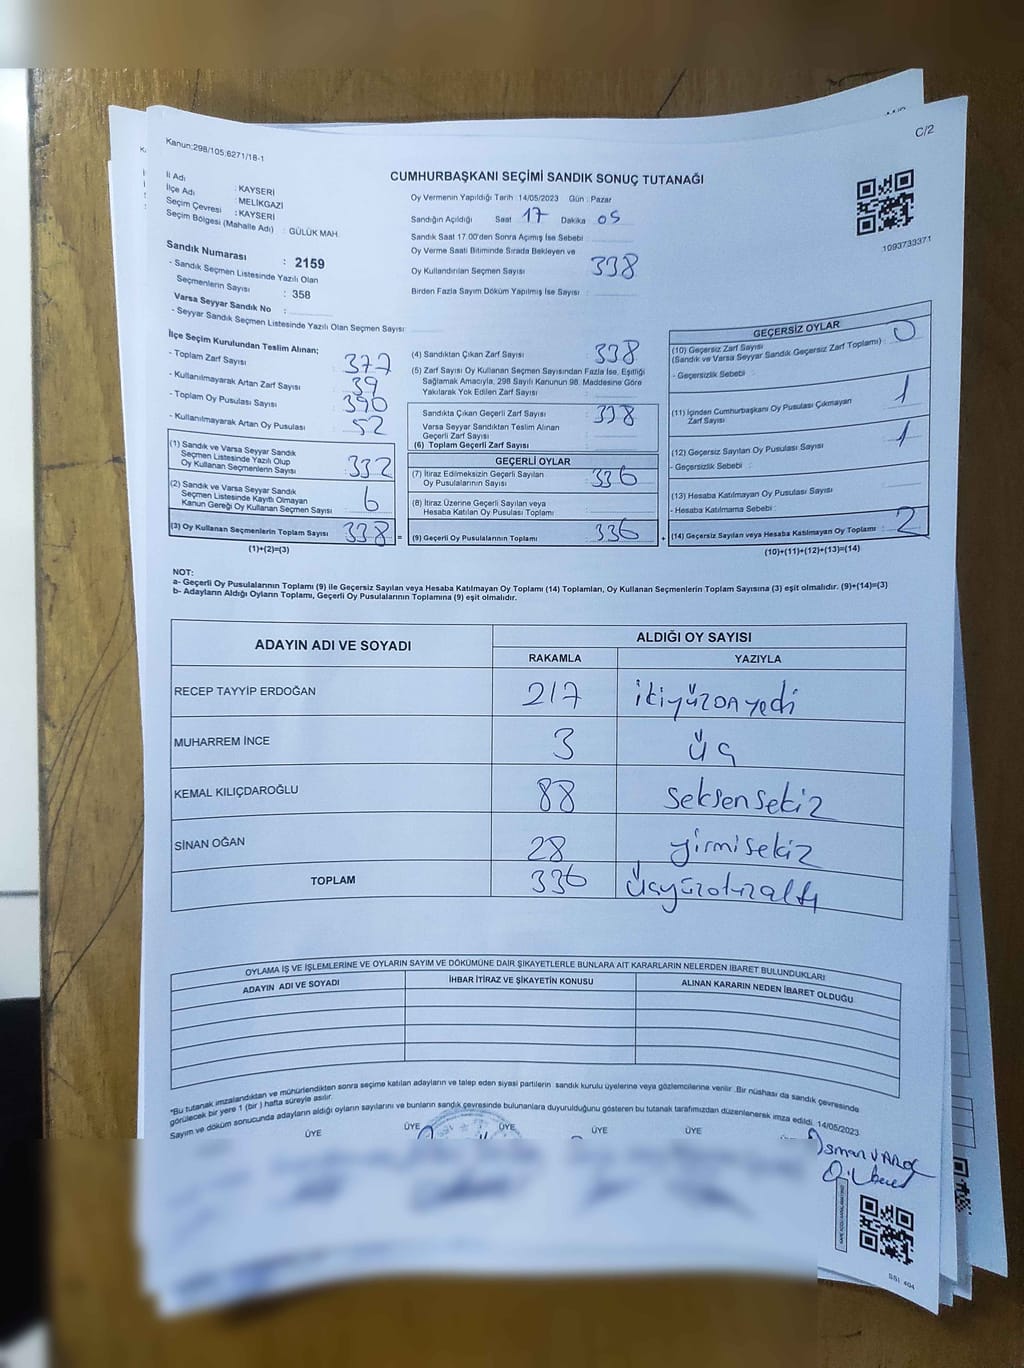 C/2
Kanun:298/105:6271/18-1
CUMHURBAŞKANI SEÇİMİ SANDIK SONUÇ TUTANAĞI
İl Adı : KAYSERİ
İlçe Adı : MELİKGAZİ
Seçim Çevresi : KAYSERİ
Seçim Bölgesi (Mahalle Adı) : GÜLÜK MAH.
Sandık Numarası : 2159
- Sandık Seçmen Listesinde Yazılı Olan
Seçmenlerin Sayısı : 358
Varsa Seyyar Sandık No :
- Seyyar Sandık Seçmen Listesinde Yazılı Olan Seçmen Sayısı:
Oy Vermenin Yapıldığı Tarih :14/05/2023 Gün : Pazar
Sandığın Açıldığı Saat 17 Dakika 05
Sandık Saat 17.00'den Sonra Açımış İse Sebebi
Oy Verme Saati Bitiminde Sırada Bekleyen ve
Oy Kullandırılan Seçmen Sayısı 338
Birden Fazla Sayım Döküm Yapılmış İse Sayısı :
1093733371
İlçe Seçim Kurulundan Teslim Alınan;
- Toplam Zarf Sayısı : 377
- Kullanılmayarak Artan Zarf Sayısı : 39
- Toplam Oy Pusulası Sayısı : 390
- Kullanılmayarak Artan Oy Pusulası : 52
(1) Sandık ve Varsa Seyyar Sandık
Seçmen Listesinde Yazılı Olup
Oy Kullanan Seçmenlerin Sayısı : 332
(2) Sandık ve Varsa Seyyar Sandık
Seçmen Listesinde Kayıtlı Olmayan
Kanun Gereği Oy Kullanan Seçmen Sayısı : 6
(3) Oy Kullanan Seçmenlerin Toplam Sayısı : 338 =
(1)+(2)=(3)
(4) Sandıktan Çıkan Zarf Sayısı : 338
(5) Zarf Sayısı Oy Kullanan Seçmen Sayısından Fazla İse, Eşitliği
Sağlamak Amacıyla, 298 Sayılı Kanunun 98. Maddesine Göre
Yakılarak Yok Edilen Zarf Sayısı :
Sandıkta Çıkan Geçerli Zarf Sayısı : 338
Varsa Seyyar Sandıktan Teslim Alınan
Geçerli Zarf Sayısı
(6) Toplam Geçerli Zarf Sayısı :
GEÇERLİ OYLAR
(7) İtiraz Edilmeksizin Geçerli Sayılan
Oy Pusulalarının Sayısı : 336
(8) İtiraz Üzerine Geçerli Sayılan veya
Hesaba Katılan Oy Pusulası Toplamı :
(9) Geçerli Oy Pusulalarının Toplamı : 336 +
GEÇERSİZ OYLAR
(10) Geçersiz Zarf Sayısı
(Sandık ve Varsa Seyyar Sandık Geçersiz Zarf Toplamı) : 0
- Geçersizlik Sebebi :
(11) İçinden Cumhurbaşkanı Oy Pusulası Çıkmayan
Zarf Sayısı : 1
(12) Geçersiz Sayılan Oy Pusulası Sayısı : 1
- Geçersizlik Sebebi :
(13) Hesaba Katılmayan Oy Pusulası Sayısı :
- Hesaba Katılmama Sebebi :
(14) Geçersiz Sayılan veya Hesaba Katılmayan Oy Toplamı : 2
(10)+(11)+(12)+(13)=(14)
NOT:
a- Geçerli Oy Pusulalarının Toplamı (9) ile Geçersiz Sayılan veya Hesaba Katılmayan Oy Toplamı (14) Toplamları, Oy Kullanan Seçmenlerin Toplam Sayısına (3) eşit olmalıdır. (9)+(14)=(3)
b- Adayların Aldığı Oyların Toplamı, Geçerli Oy Pusulalarının Toplamına (9) eşit olmalıdır.
ADAYIN ADI VE SOYADI ALDIĞI OY SAYISI
RAKAMLA YAZIYLA
RECEP TAYYİP ERDOĞAN 217 ikiyüzonyedi
MUHARREM İNCE 3 üç
KEMAL KILIÇDAROĞLU 88 seksensekiz
SİNAN OĞAN 28 yirmisekiz
TOPLAM 336 üçyüzotuzaltı
OYLAMA İŞ VE İŞLEMLERİNE VE OYLARIN SAYIM VE DÖKÜMÜNE DAİR ŞİKAYETLERLE BUNLARA AİT KARARLARIN NELERDEN İBARET BULUNDUKLARI
ADAYIN ADI VE SOYADI İHBAR İTİRAZ VE ŞİKAYETİN KONUSU ALINAN KARARIN NEDEN İBARET OLDUĞU
*Bu tutanak imzalandıktan ve mühürlendikten sonra seçime katılan adayların ve talep eden siyasi partilerin sandık kurulu üyelerine veya gözlemcilerine verilir. Bir nüshası da sandık çevresinde
görülecek bir yere 1 (bir ) hafta süreyle asılır.
Sayım ve döküm sonucunda adayların aldığı oyların sayılarını ve bunların sandık çevresinde bulunanlara duyurulduğunu gösteren bu tutanak tarafımızdan düzenlenerek imza edildi. 14/05/2023
ÜYE ÜYE ÜYE ÜYE ÜYE
Osman VAROL